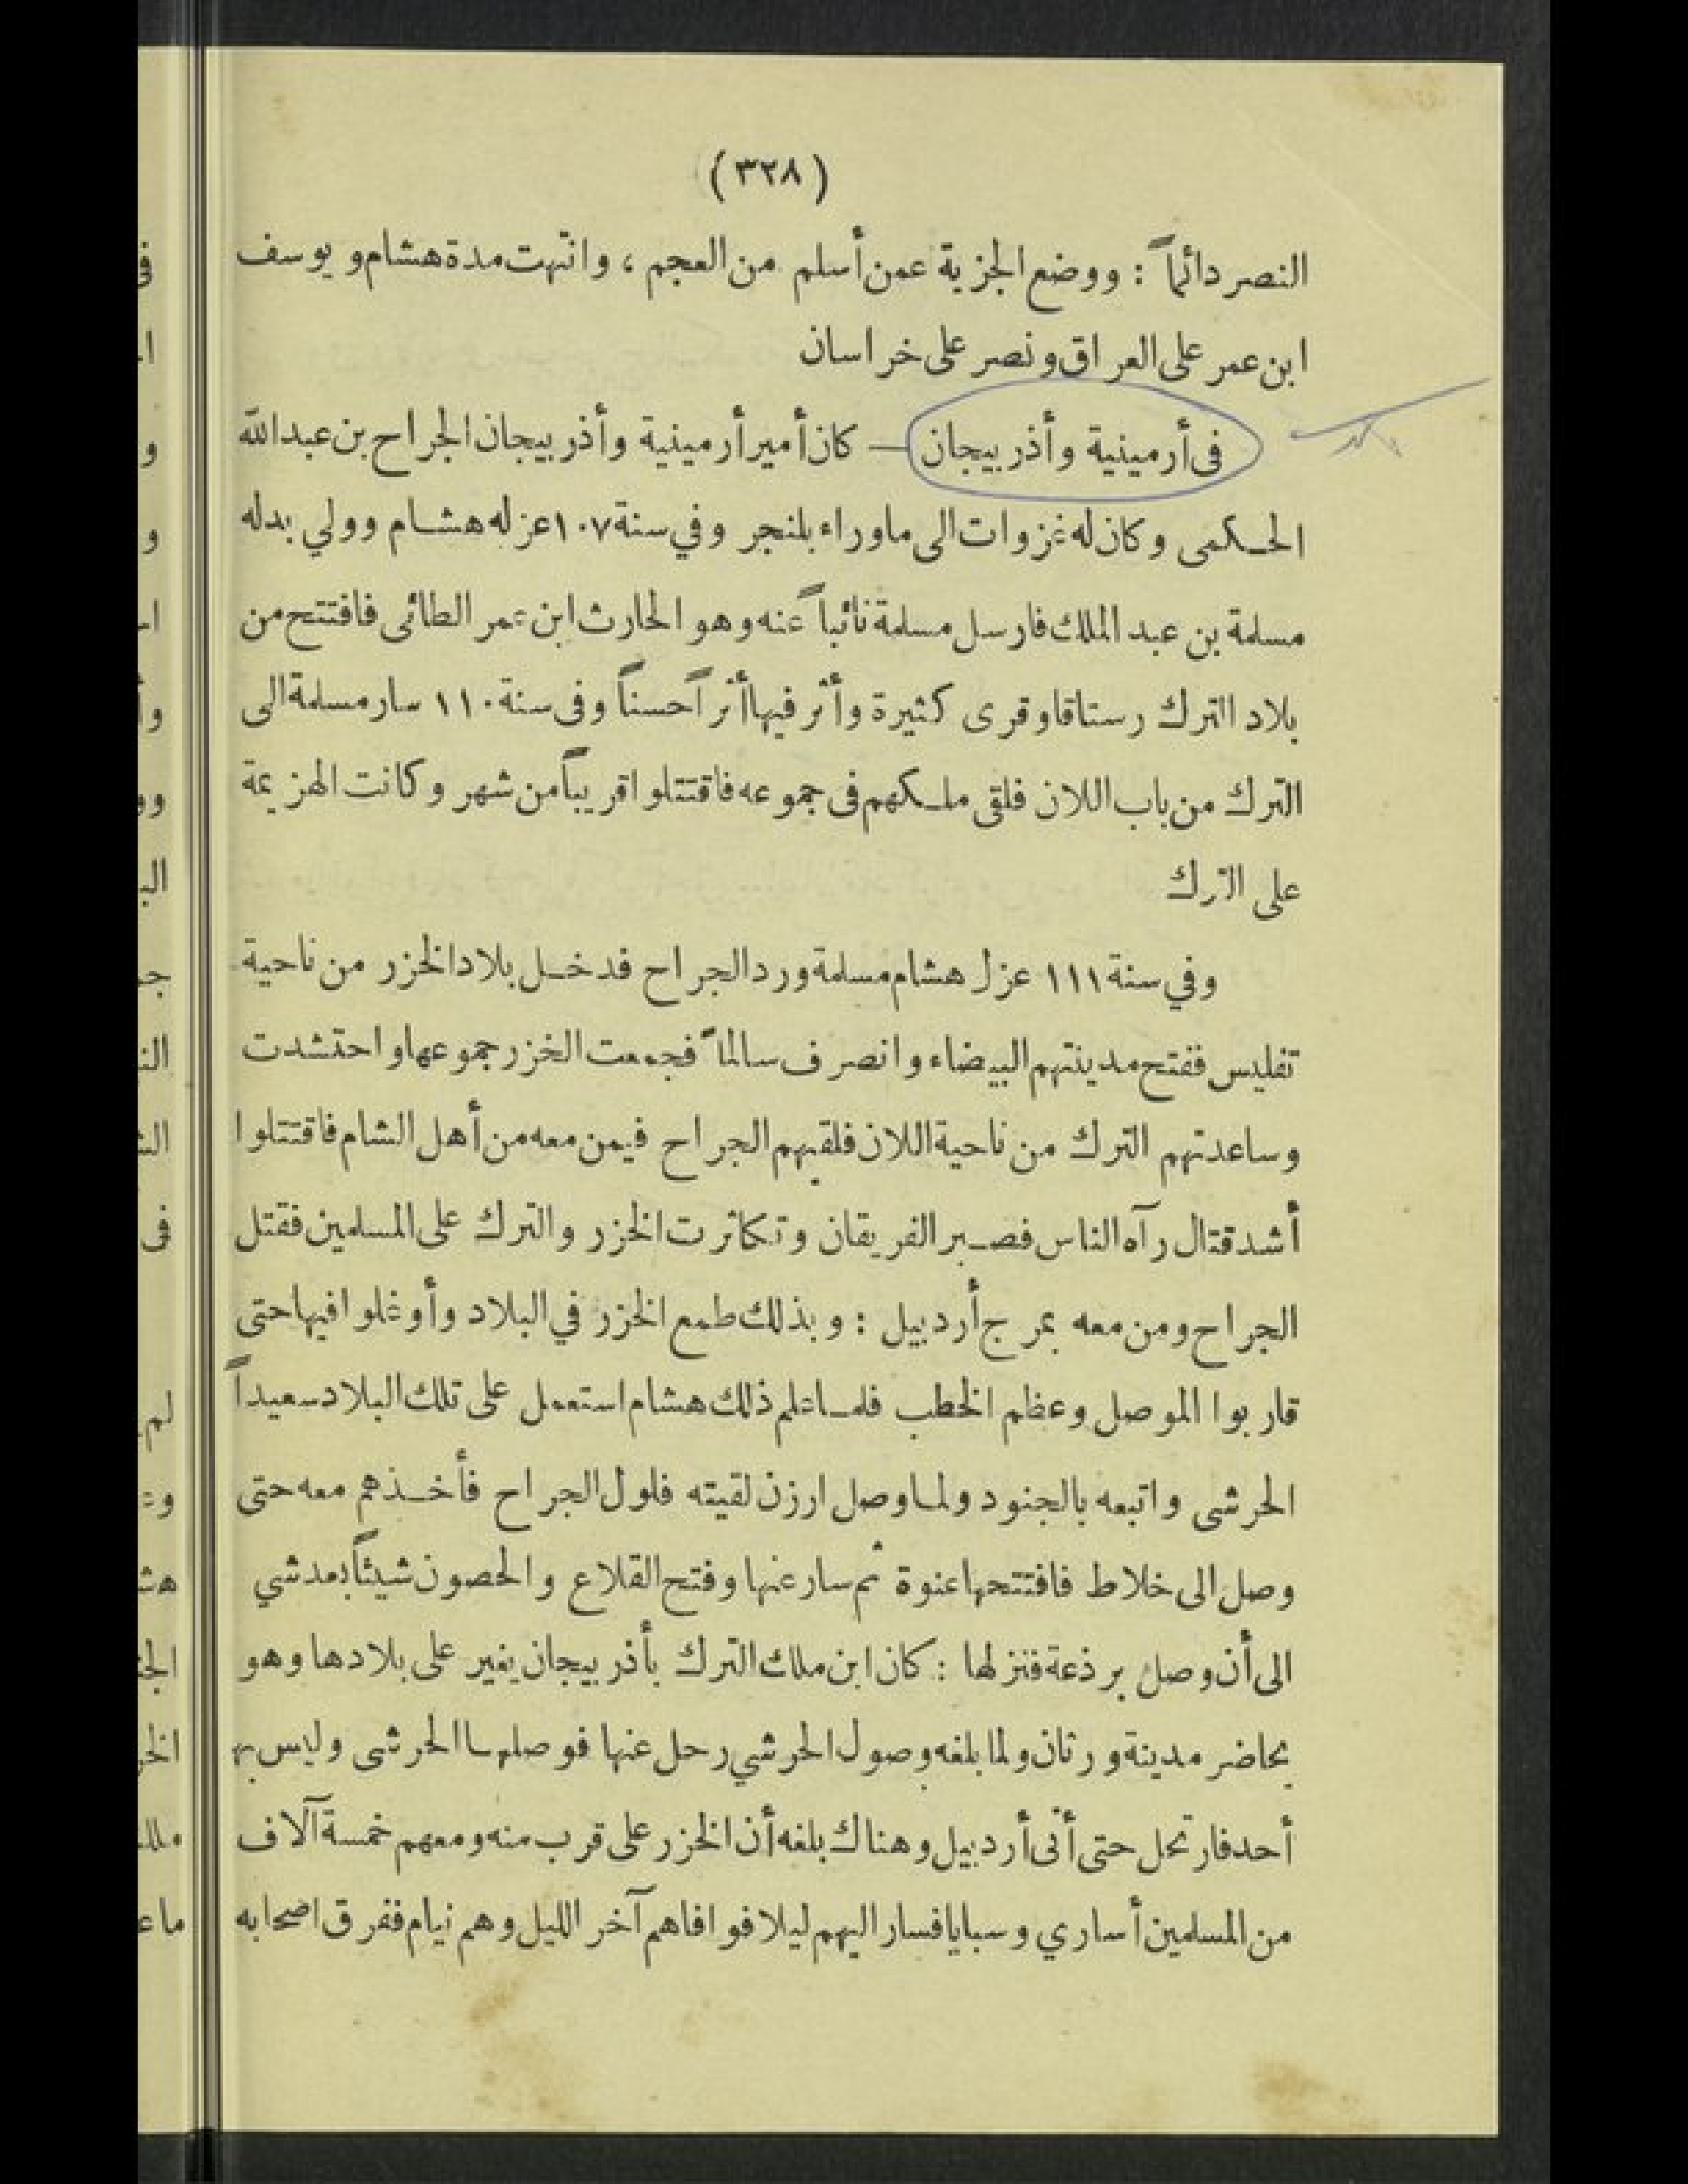 (٣٢٨)
النصر دائماً : ووضع الجزية عمن أسلم من العجم ، وانتهت مدة هشام و يوسف
ابن عمر على العراق ونصر على خراسان
فى أرمينية وأذربيجان — كان أمير أرمينية وأذربيجان الجراح بن عبد الله
الحكمى وكان له غزوات الى ماوراء بلنجر وفي سنة ١٠٧ عزله هشام وولي بدله
مسلمة بن عبد الملك فارسل مسلمة نائباً عنه وهو الحارث ابن عمر الطائى فافتتح من
بلاد الترك رستاقا وقرى كثيرة وأثر فيها أثراً حسناً وفى سنة ١١٠ سار مسلمة الى
الترك من باب اللان فلقى ملكهم فى جموعه فاقتتلوا قريباً من شهر وكانت الهزيمة
على الترك
وفي سنة ١١١ عزل هشام مسلمة ورد الجراح فدخل بلاد الخزر من ناحية
تفليس ففتح مدينتهم البيضاء وانصرف سالماً فجمعت الخزر جموعها واحتشدت
وساعدتهم الترك من ناحية اللان فلقيهم الجراح فيمن معه من أهل الشام فاقتتلوا
أشد قتال رآه الناس فصبر الفريقان وتكاثرت الخزر والترك على المسلمين فقتل
الجراح ومن معه بمرج أردبيل : وبذلك طمع الخزر في البلاد وأوغلوا فيها حتى
قاربوا الموصل وعظم الخطب فلما علم ذلك هشام استعمل على تلك البلاد سعيداً
الحرشى واتبعه بالجنود ولما وصل ارزن لقيته فلول الجراح فأخذهم معه حتى
وصل الى خلاط فافتتحها عنوة ثم سار عنها وفتح القلاع والحصون شيئاً بعد شي
الى أن وصل برذعة فنزلها : كان ابن ملك الترك بأذربيجان يغير على بلادها وهو
يحاضر مدينة ورثان ولما بلغه وصول الحرشي رحل عنها فوصلها الحرشى وليس بها
أحد فارتحل حتى أتى أردبيل وهناك بلغه أن الخزر على قرب منه ومعهم خمسة آلاف
من المسلمين أساري وسبايا فسار اليهم ليلا فوافاهم آخر الليل وهم نيام ففرق اصحابه